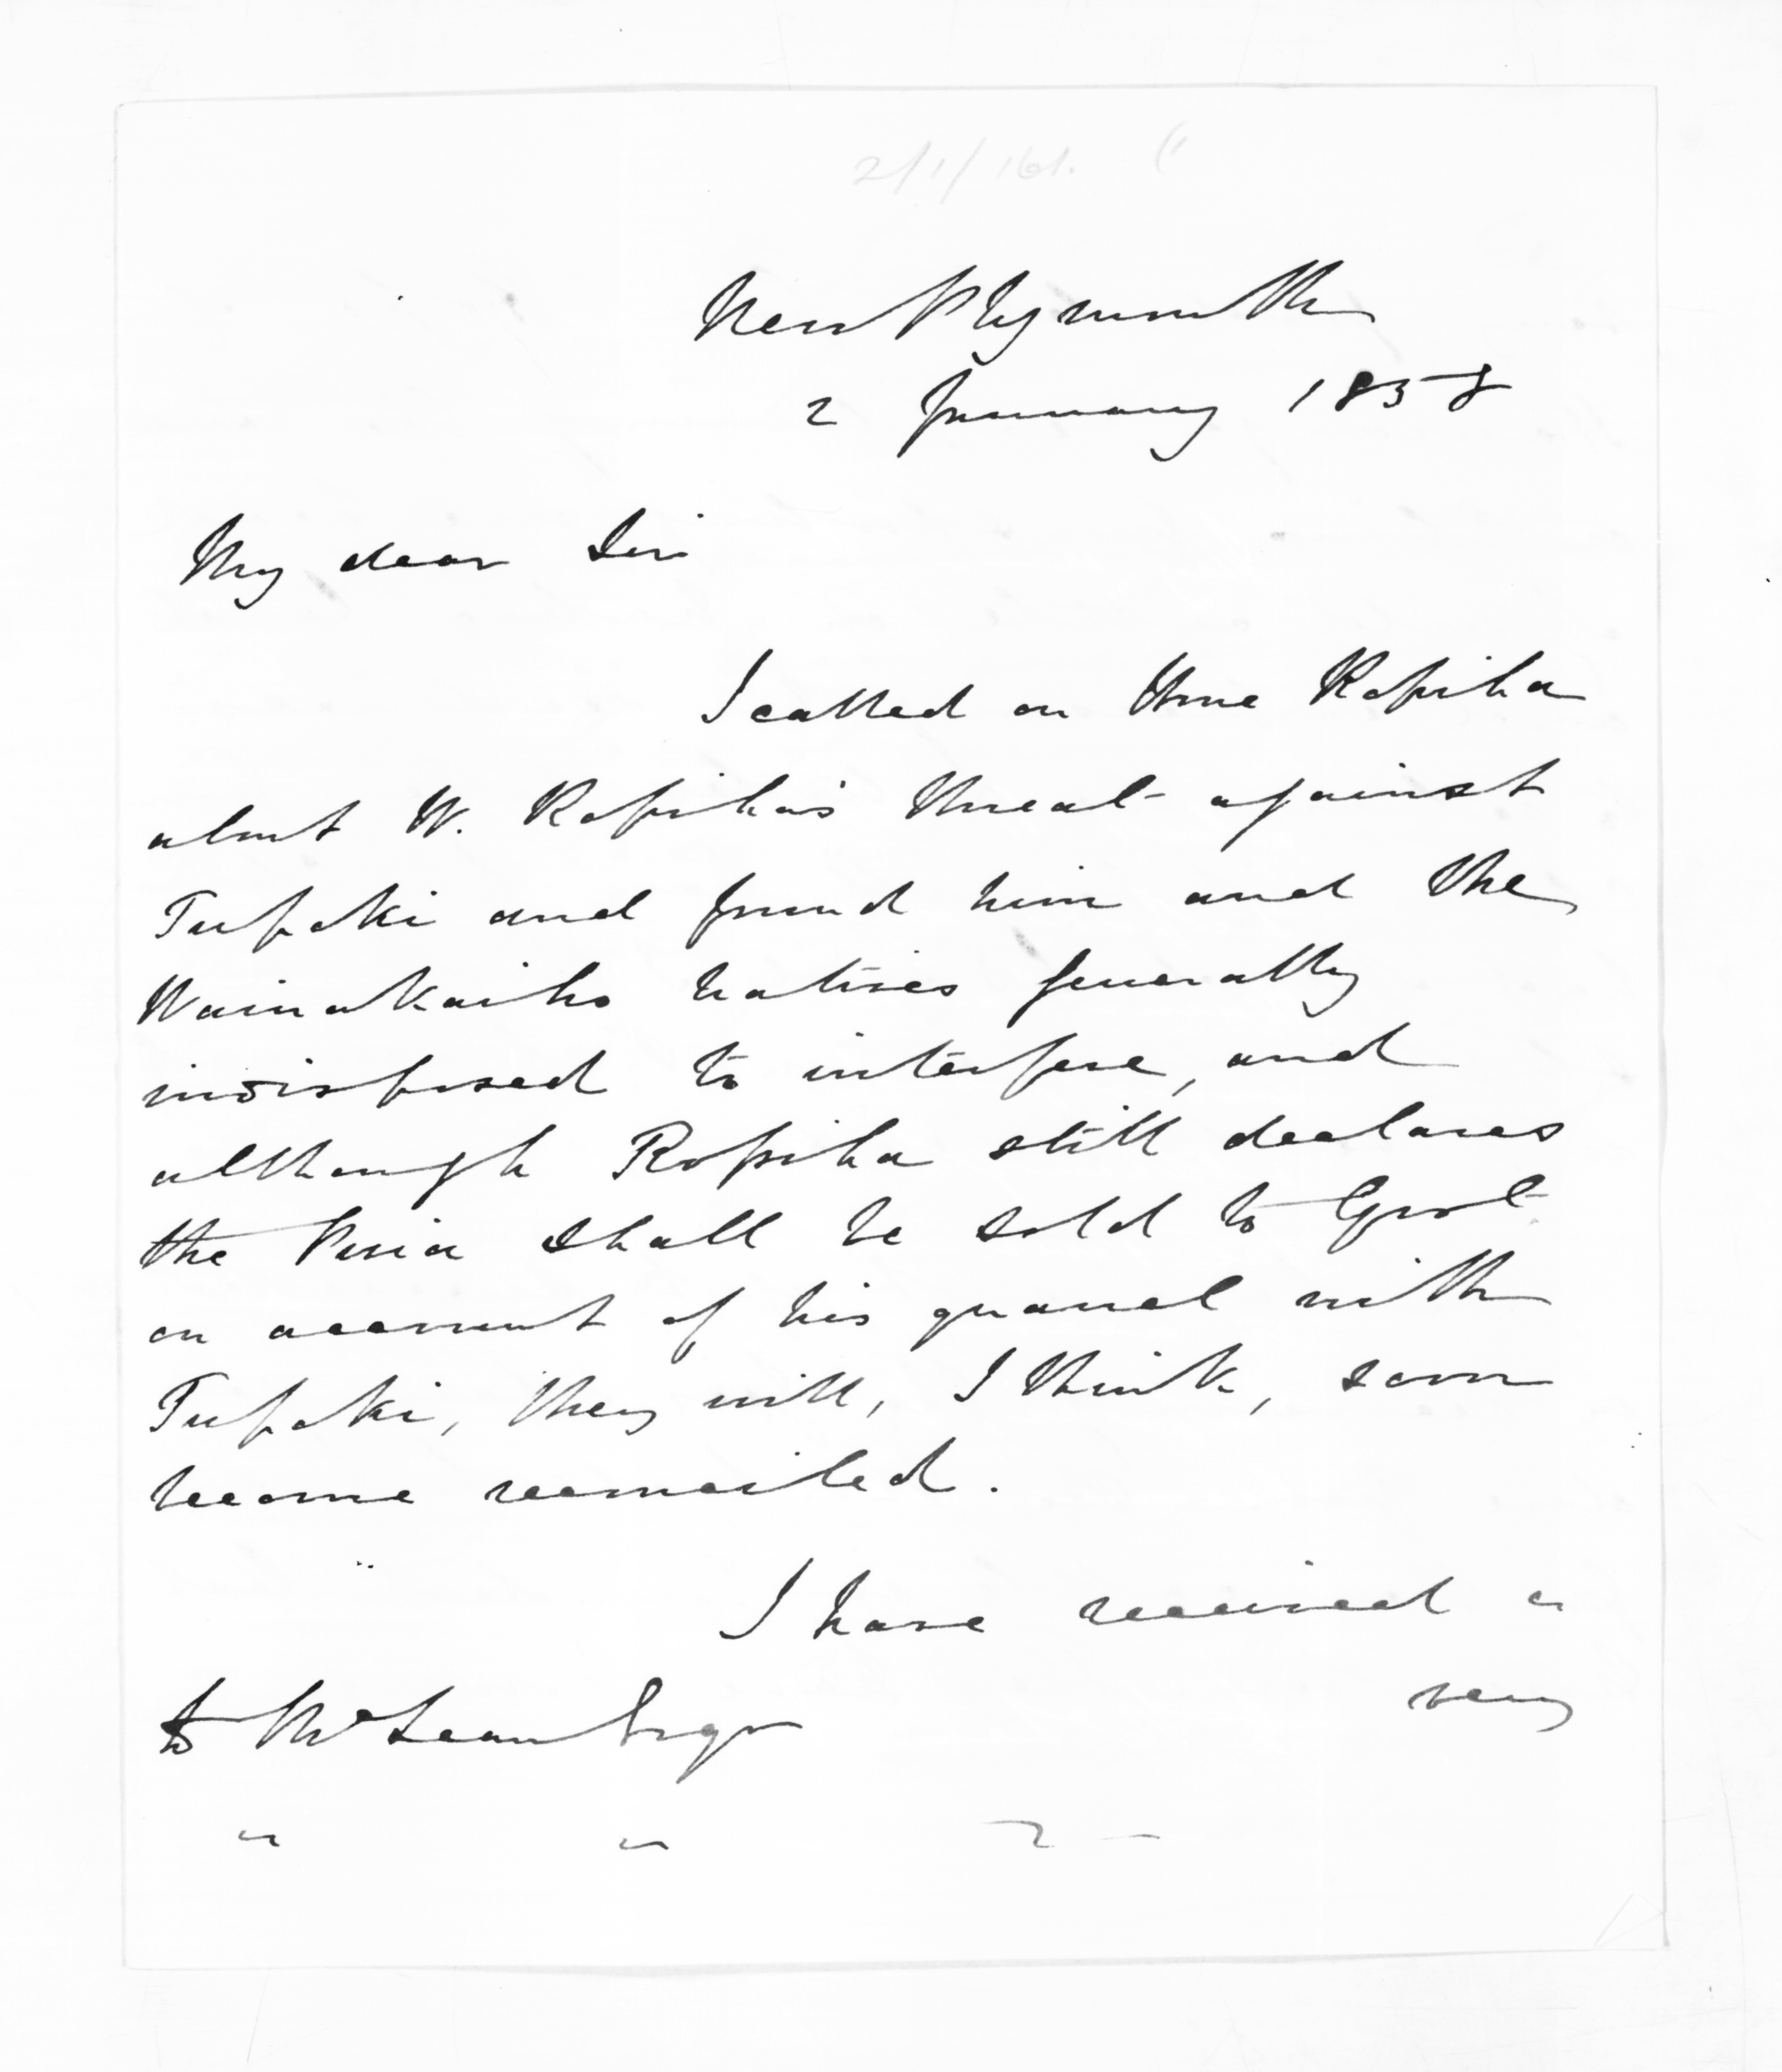 2/1/161.
New Plymouth
2 January 1858
My dear Sir
I called on Ropiha
about W. Ropiha's threat against
Tupoki and found him and the
Waiwakaiho natives generally
indisposed to interfere, and
although Ropiha still declares
the Puia shall be sold to Govt
on account of his quarrel with
Tupoki, they will, I think, soon
become reconciled.
I have received a
very
to McLean Esqr
" "